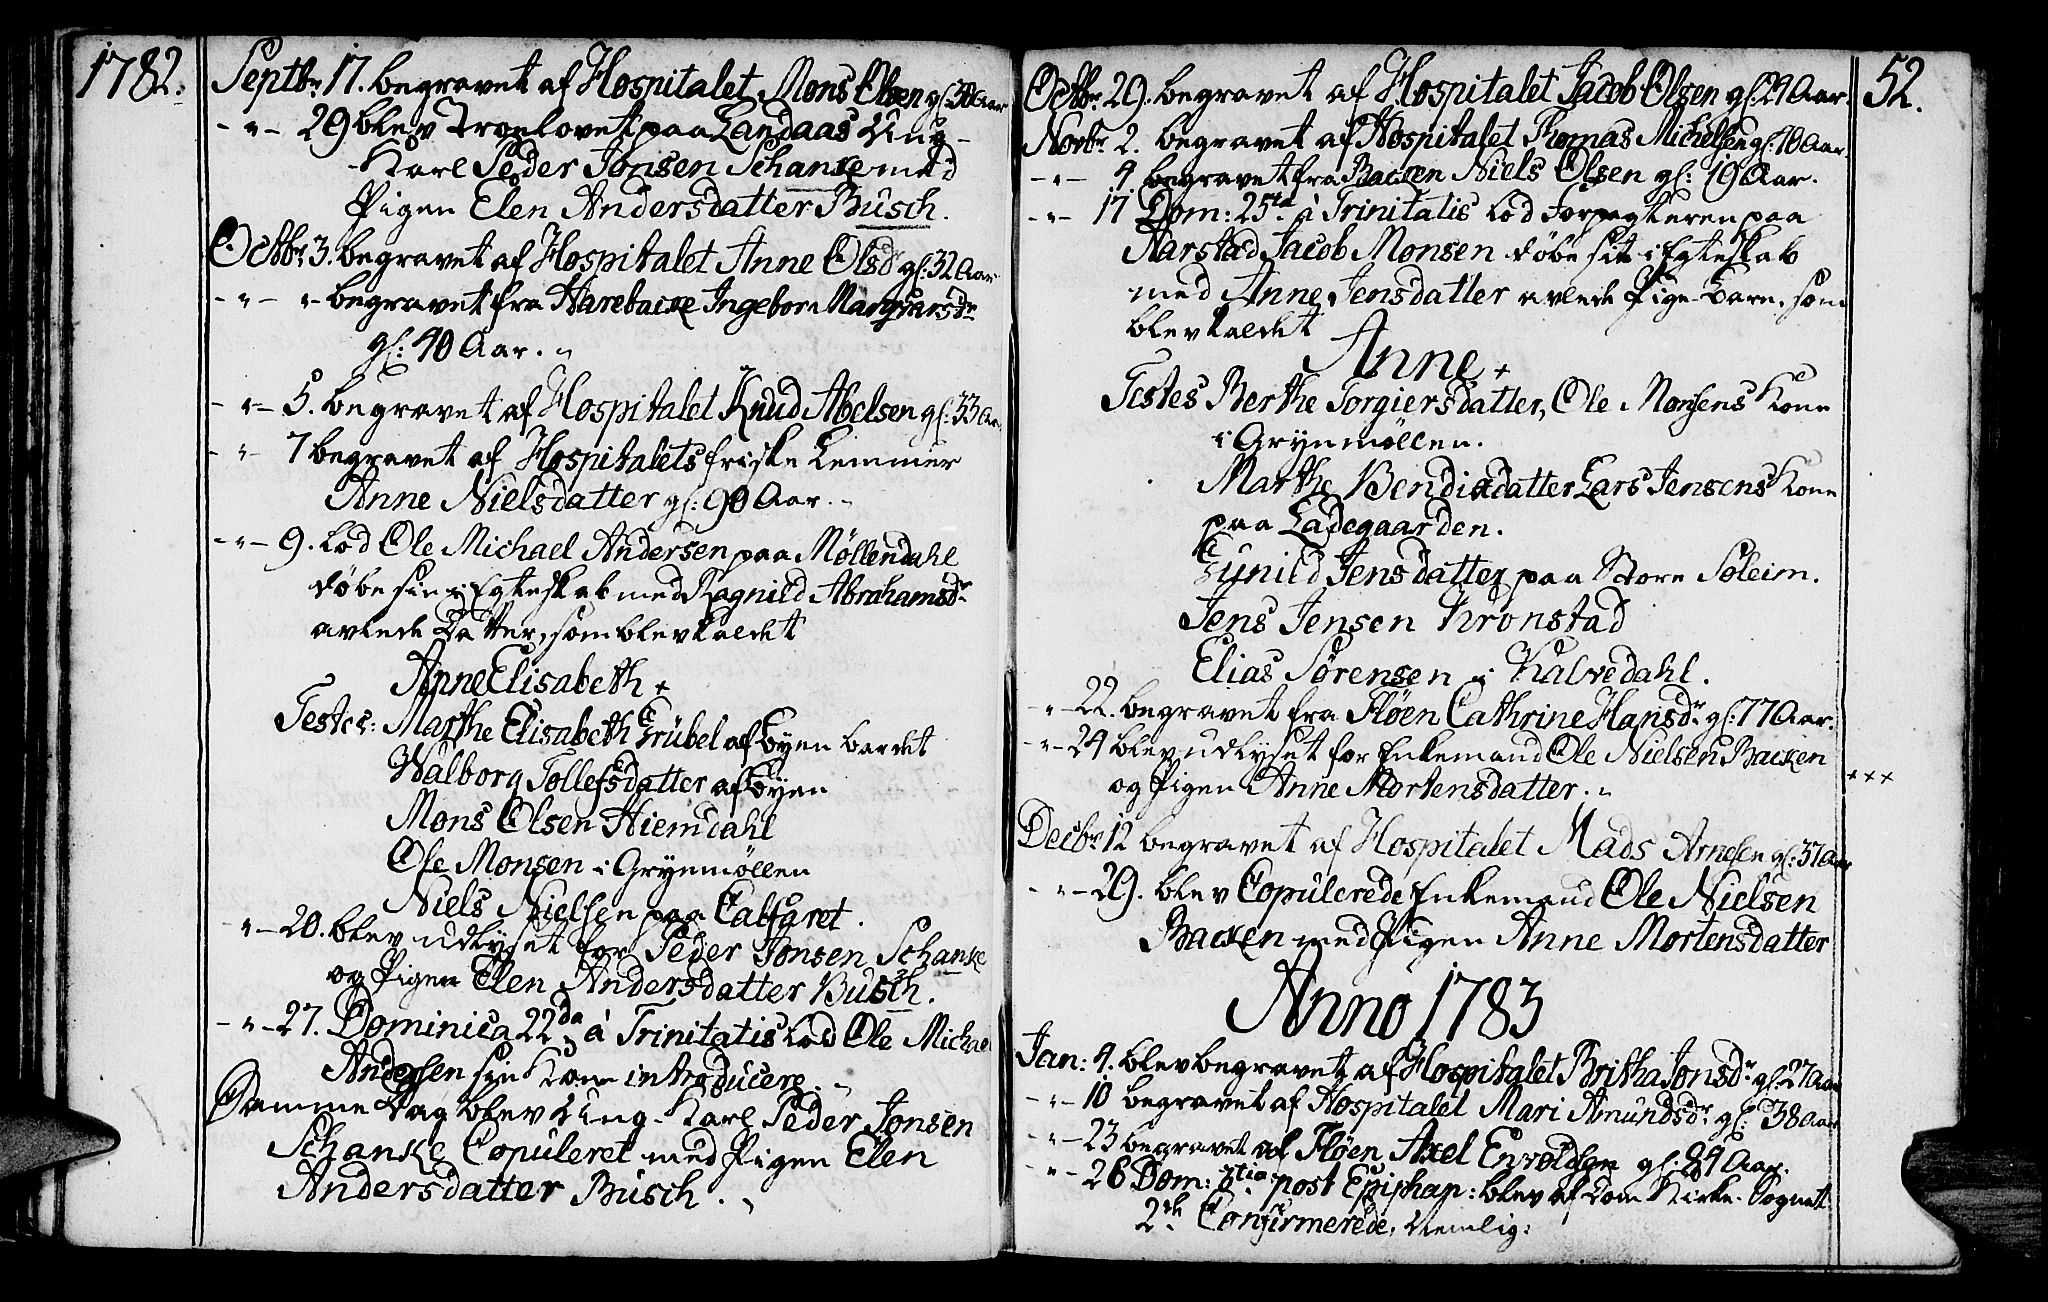 1782.
Septbr 17. begravet af Hospitalet Mons Olsen gl: 30 Aar
- " - 29 blev Troelovet paa Landaas Ung-
Karl Peder Jonsen Schanke med
Pigen Elen Andersdatter Busch.
Octbr 3. begravet af Hospitalet Anne Olsdr gl: 32 Aar
- " - " - begravet fra Harebacke Ingebor
gl: 40 Aar. "
- " - 5. begravet af Hospitalet Knud Abelsen gl: 33 Aar
- " - 7 begravet af Hospitalets friske Lemmer
Anne Nielsdatter gl: 90 Aar. "
- " - 9. lod Ole Michael Andersen paa Møllendahl
døbe sin i Egteskab med Ragnild Abrahamsdr
avlede Datter, som blev kaldet
Anne Elisabeth +
Testes: Marthe Elisabeth Grübel af Byen bar det
Walborg Tollefsdatter af Byen
Mons Olsen Hiemdahl
Ole Monsen i Grynmøllen
Niels Nielsen paa Calfaret.
- " - 20. blev udlyset for Peder Jonsen Schanke
og Pigen Elen Andersdatter Busch.
- " - 27. Dominica 22da à Trinitatis lod Ole Michael
Andersen sin Kone introducere. "
Samme Dag blev Ung-Karl Peder Jonsen
Schanke Copuleret med Pigen Elen
Andersdatter Busch. "
52.
Octbr 29. begravet af Hospitalet Jacob Olsen gl: 29 Aar.
Novbr 2. begravet af Hospitalet Thomas Michelsen gl: 70 Aar.
- " - 4 begravet fra Backen Niels Olsen gl: 19 Aar.
- " - 17. Dom: 25ta à Trinitatis lod Forpagteren paa
Aarstad Jacob Monsen døbe sit i Egteskab
med Anne Jensdatter avlede Pige-Barn, som
blev kaldet
Anne +
Testes Berthe Torgiersdatter, Ole Monsens Kone
i Grynmøllen.
Marthe Bendixdatter Lars Jensens Kone
paa Ladegaarden.
Gunild Jensdatter paa Store Soleim.
Jens Jensen Kronstad
Elias Sørensen i Kalvedahl.
- " - 22. begravet fra Fløen Cathrine Hansdr gl: 77 Aar.
- " - 24 blev udlyset for Enkemand Ole Nielsen Backen
og Pigen Anne Mortensdatter. " +++
Decbr 12 begravet af Hospitalet Mads Arnesen gl: 37 Aar
- " - 29. blev Copulerede Enkemand Ole Nielsen
Backen med Pigen Anne Mortensdatter
Anno 1783
Jan: 4. blev begravet af Hospitalet Britha Jonsdr gl: 27 Aar
- " - 10 begravet af Hospitalet Mari Amundsdr gl: 38 Aar
- " - 23 begravet af Fløen Axel Envoldsen gl: 84 Aar.
- " - 26 Dom: 3tia post Epiphan: blev af Dom Kirke-Sognet
2de Confirmerede, Nemlig: